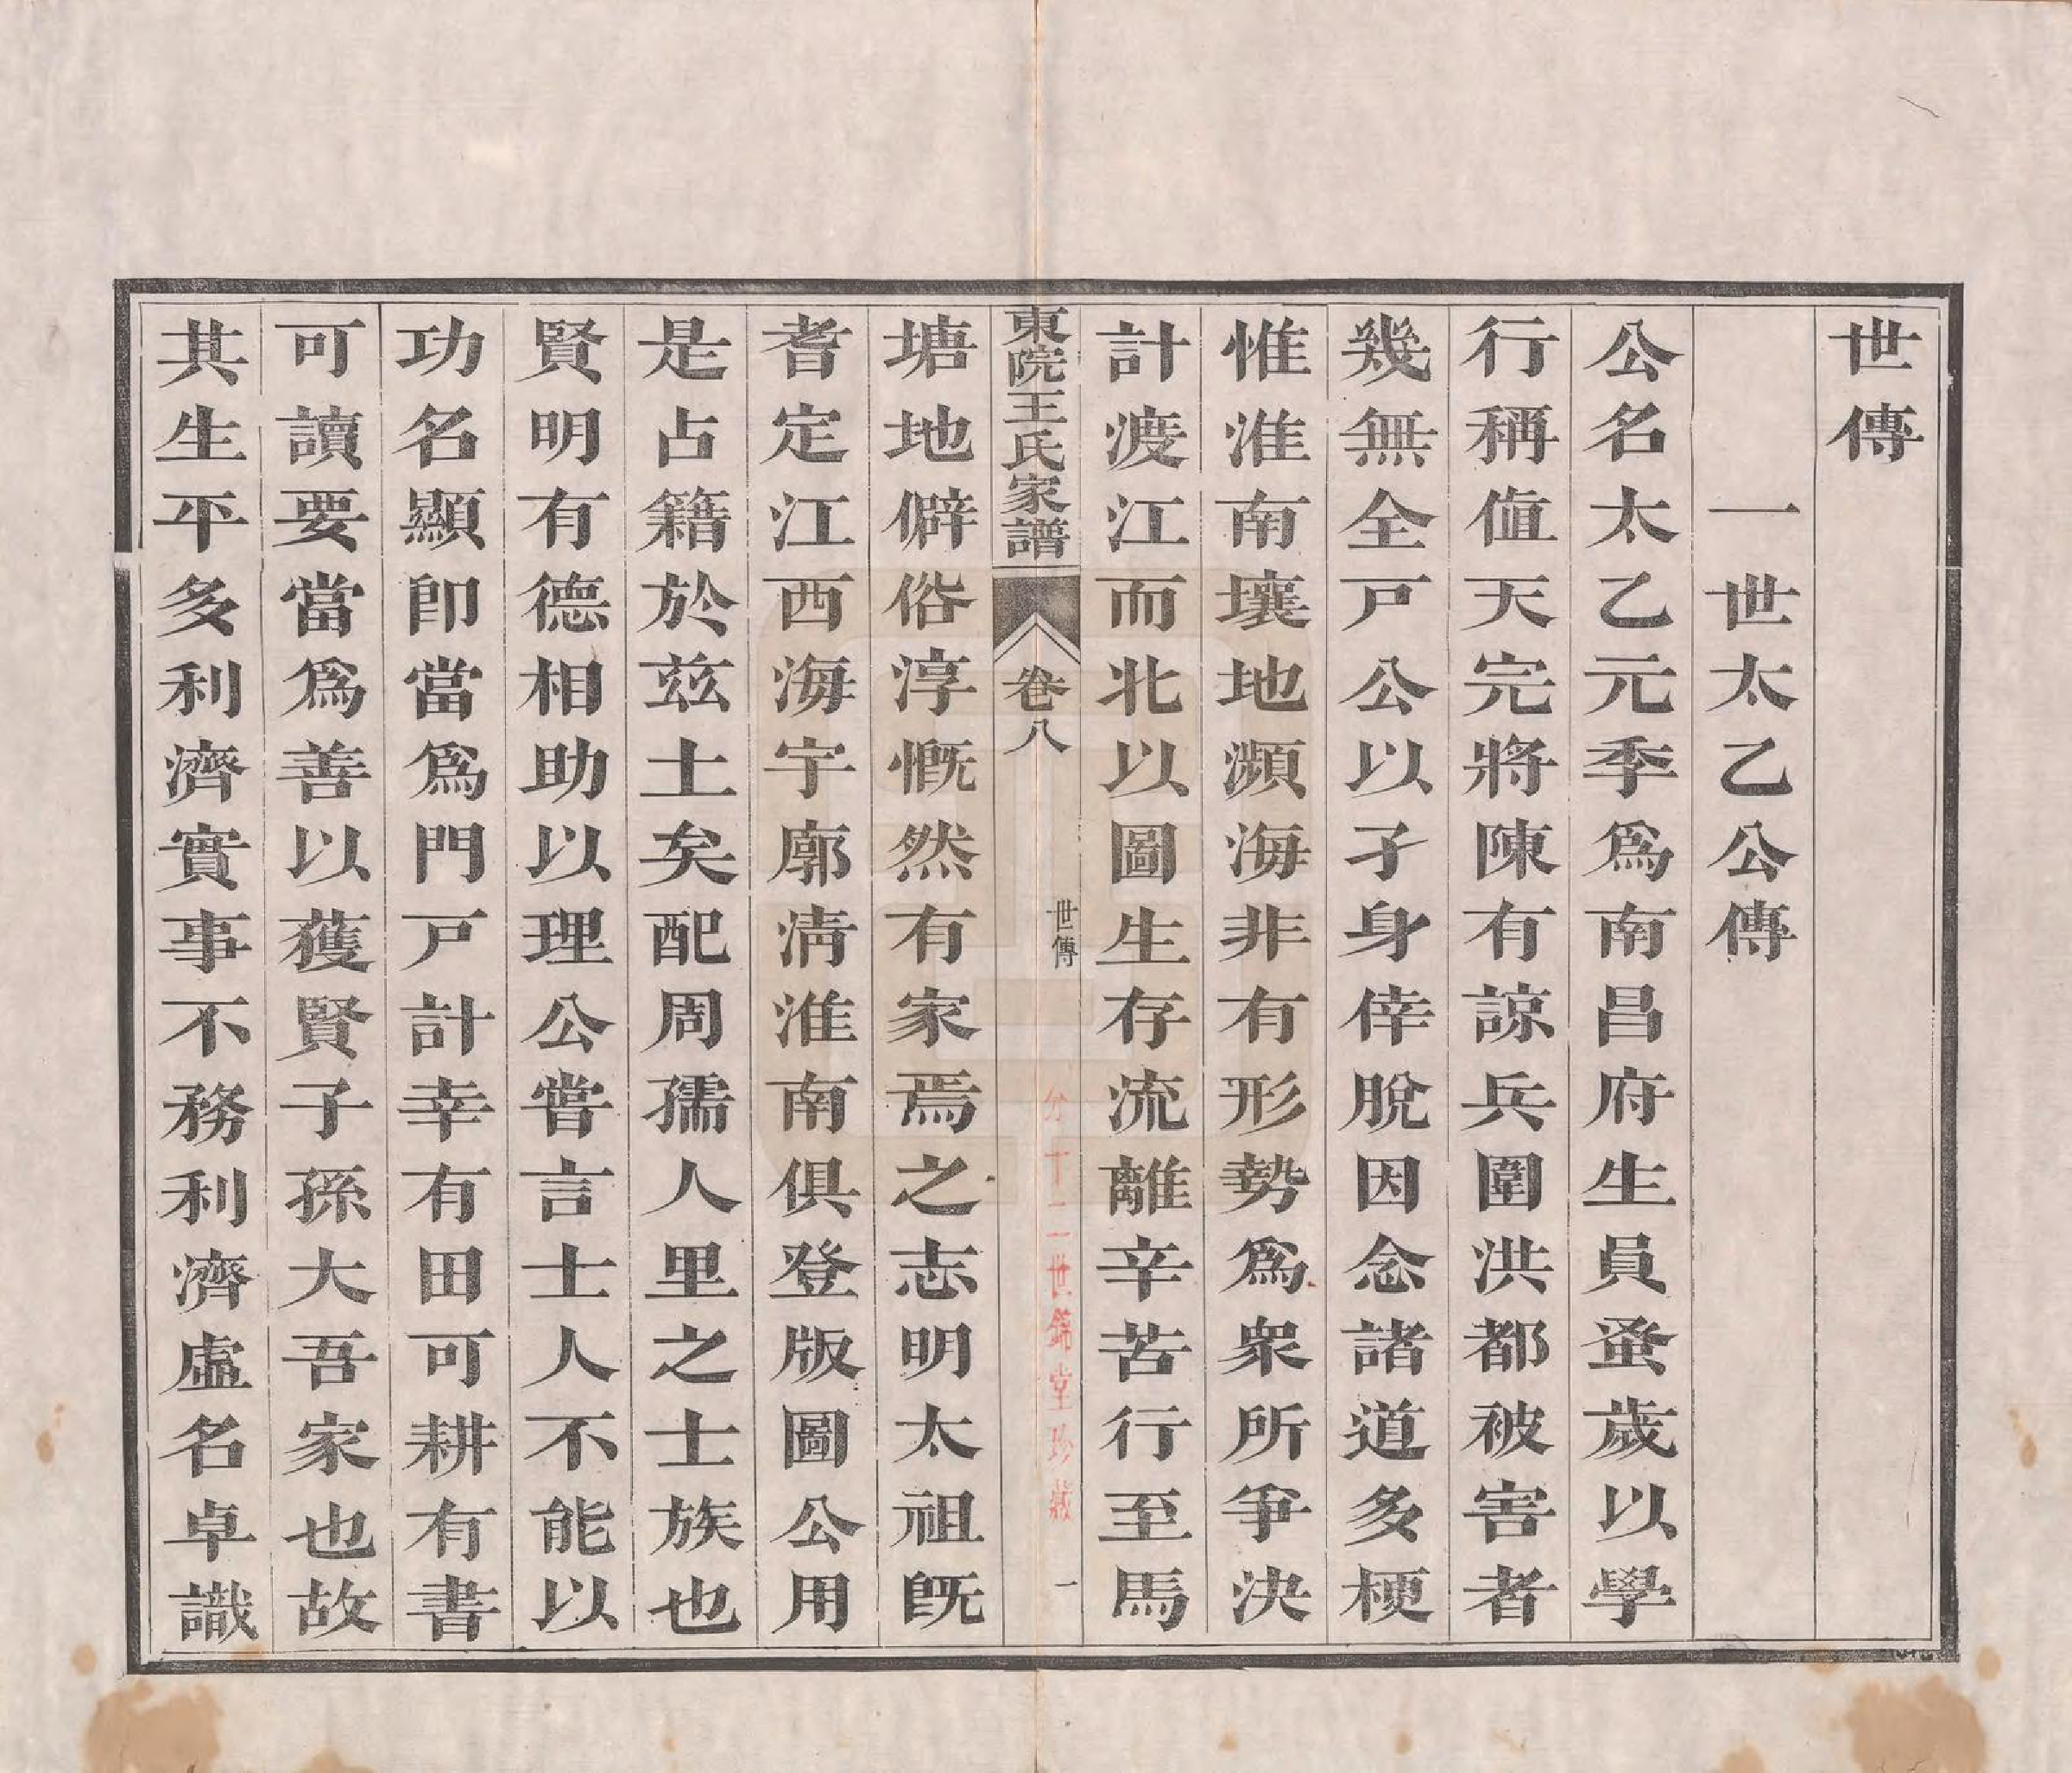 世傳
一世太乙公傳
公名太乙元季爲南昌府生員蚤歲以學
行稱値天完將陳有諒兵圍洪都被害者
幾無全戸公以孑身倖脫因念諸道多梗
惟淮南壤地瀕海非有形勢爲衆所爭決
計渡江而北以圖生存流離辛苦行至馬
東院王氏家譜
卷八
世傳
一
分十二世錦堂珍藏
塘地僻俗淳慨然有家焉之志明太祖旣
耆定江西海宇廓清淮南俱登版圖公用
是占籍於茲土矣配周孺人里之士族也
賢明有德相助以理公嘗言士人不能以
功名顯卽當爲門戸計幸有田可耕有書
可讀要當爲善以獲賢子孫大吾家也故
其生平多利濟實事不務利濟虛名卓識